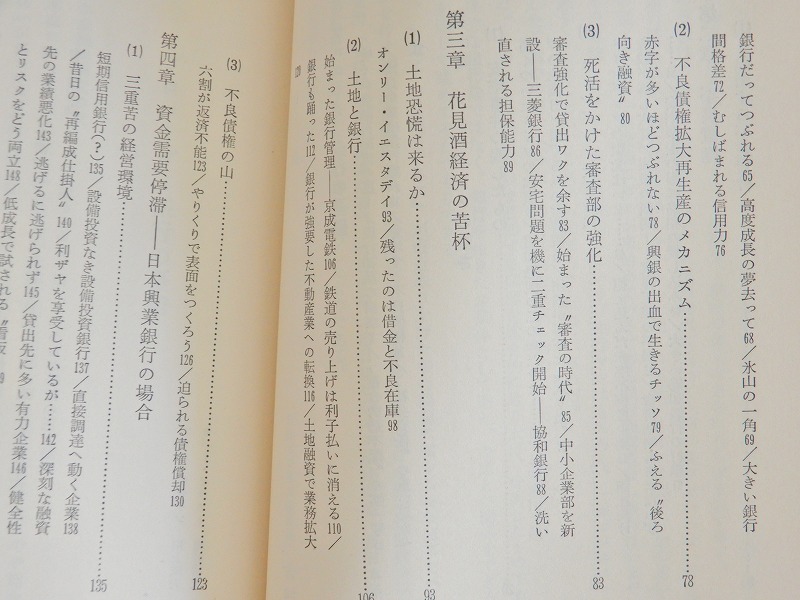 銀行だってつぶれる65/高度成長の夢去って68/氷山の一角69/大きい銀行
間格差72/むしばまれる信用力76
(2) 不良債権拡大再生産のメカニズム……78
赤字が多いほどつぶれない78/興銀の出血で生きるチッソ79/ふえる〝後ろ
向き融資〟80
(3) 死活をかけた審査部の強化……83
審査強化で貸出ワクを余す83/始まった〝審査の時代〟85/中小企業部を新
設――三菱銀行86/安宅問題を機に二重チェック開始――協和銀行88/洗い
直される担保能力89
第三章 花見酒経済の苦杯
(1) 土地恐慌は来るか……93
オンリー・イエスタデイ93/残ったのは借金と不良在庫98
(2) 土地と銀行……106
始まった銀行管理――京成電鉄106/鉄道の売り上げは利子払いに消える110/
銀行も踊った112/銀行が強要した不動産業への転換116/土地融資で業務拡大
(3) 不良債権の山……123
六割が返済不能123/やりくりで表面をつくろう126/迫られる債権償却130
第四章 資金需要停滞――日本興業銀行の場合
(1) 三重苦の経営環境……135
短期信用銀行(?)135/設備投資なき設備投資銀行137/直接調達へ動く企業138
/昔日の〝再編成仕掛人〟140/利ザヤを享受しているが……142/深刻な融資
先の業績悪化143/逃げるに逃げられず145/貸出先に多い有力企業146/健全性
とリスクをどう両立148/低成長で試される〝看板